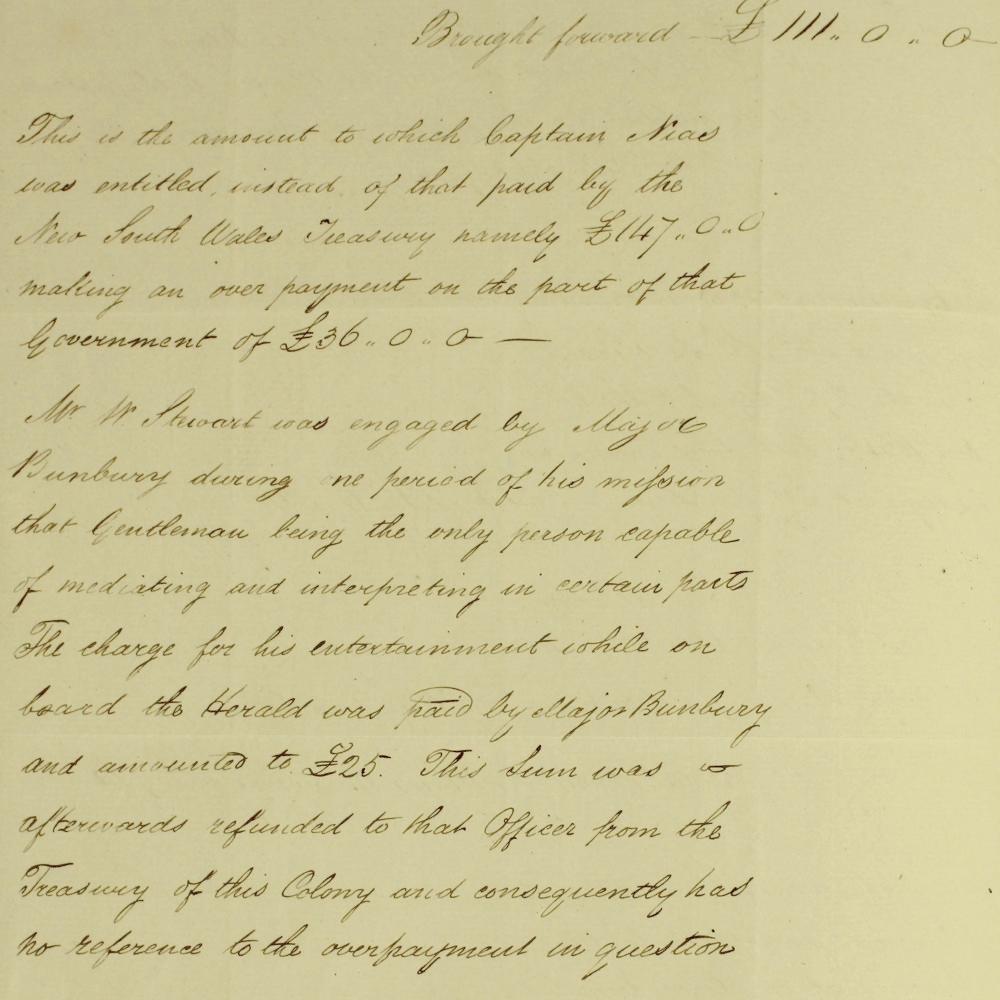 Brought forward — £111.. 0 .. 0
This is the amount to which Captain Nias
was entitled, instead of that paid by the
New South Wales Treasury namely £147..0..0
making an over payment on the part of that
Government of £36..0..0 —
Mr. W. Stewart was engaged by Major
Bunbury during one period of his mission
that Gentleman being the only person capable
of mediating and interpreting in certain parts
The charge for his entertainment while on
board the Herald was paid by Major Bunbury
and amounted to £25. This Sum was
afterwards refunded to that Officer from the
Treasury of this Colony and consequently has
no reference to the overpayment in question